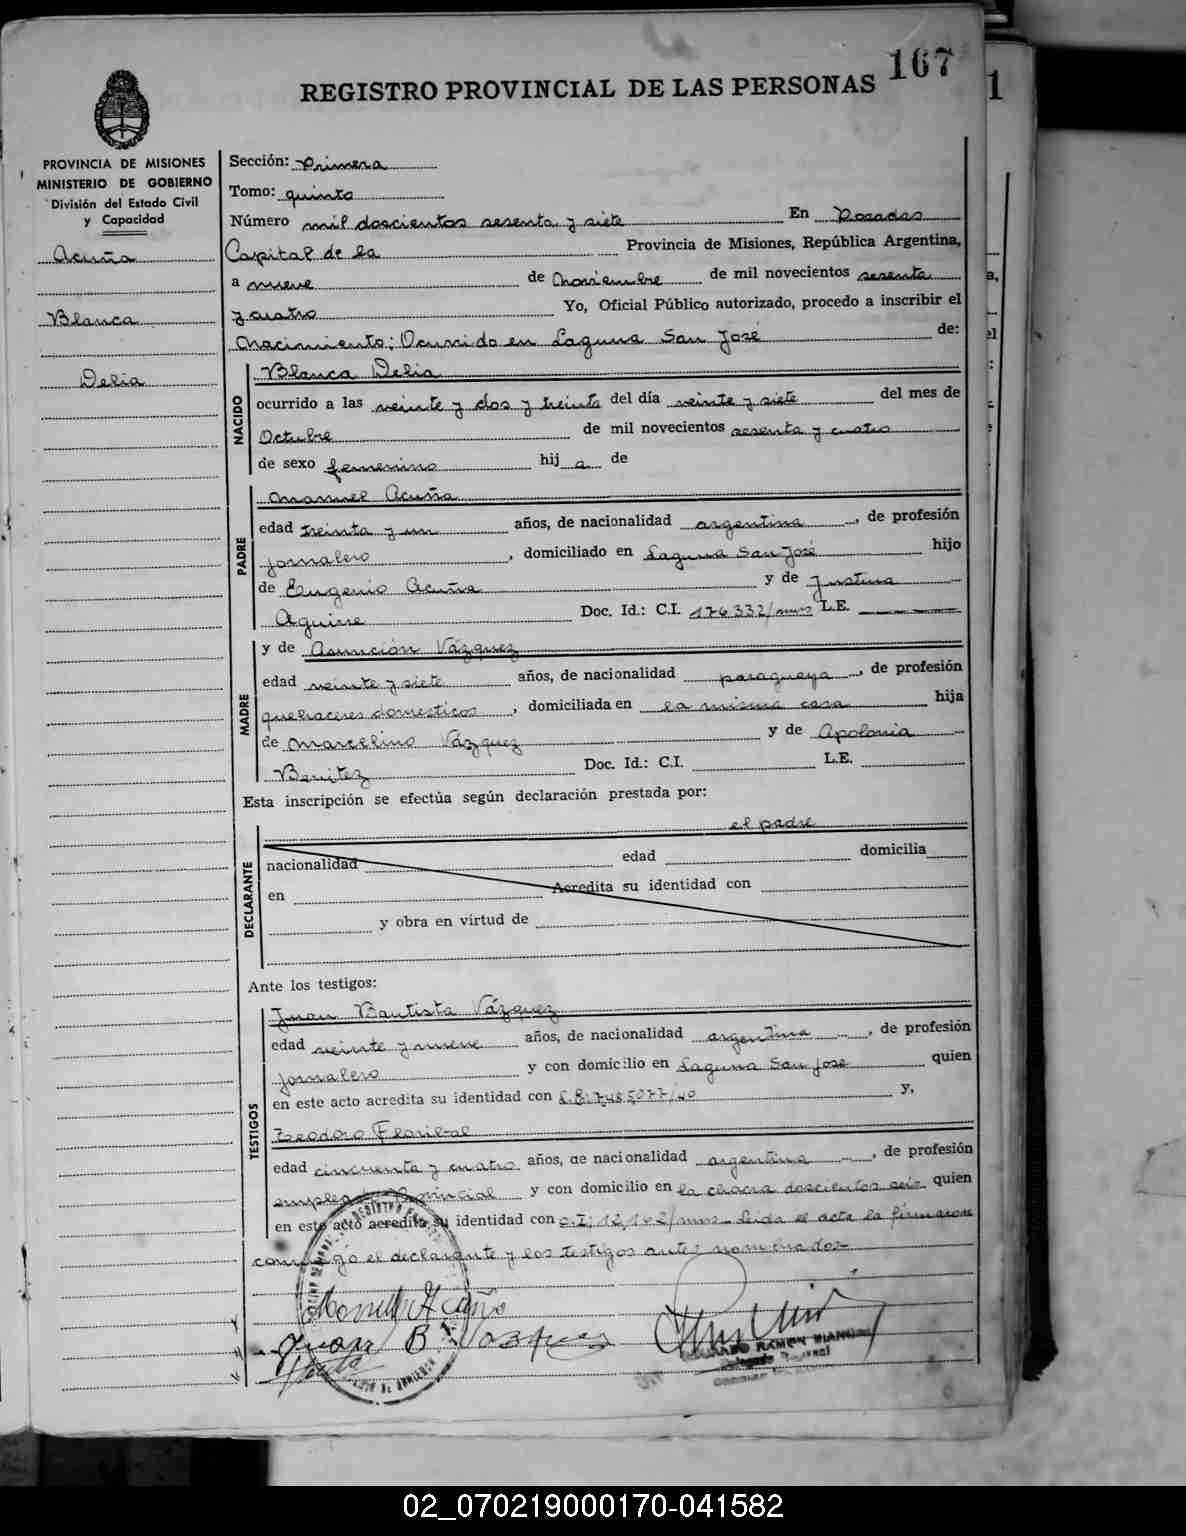 167
REGISTRO PROVINCIAL DE LAS PERSONAS
1
PROVINCIA DE MISIONES
MINISTERIO DE GOBIERNO
División del Estado Civil
y Capacidad
Acuña
Blanca
Delia
Sección: Primera
Tomo: quinto
Número mil doscientos sesenta y siete En Posadas
Capital de la Provincia de Misiones, República Argentina,
a nueve de Noviembre de mil novecientos sesenta
y cuatro Yo, Oficial Público autorizado, procedo a inscribir el
Nacimiento: Ocurrido en Laguna San José de:
NACIDO
Blanca Delia
ocurrido a las veinte y dos y treinta del día veinte y siete del mes de
Octubre de mil novecientos sesenta y cuatro
de sexo femenino hij a de
PADRE
Manuel Acuña
edad treinta y un años, de nacionalidad argentina, de profesión
jornalero, domiciliado en Laguna San José hijo
de Eugenio Acuña y de Justina
Aguirre Doc. Id.: C.I. 176332/mns L.E.
MADRE
y de Asunción Vázquez
edad veinte y siete años, de nacionalidad paraguaya, de profesión
quehaceres domesticos, domiciliada en la misma casa hija
de Marcelino Vázquez y de Apolonia
Benitez Doc. Id.: C.I. L.E.
Esta inscripción se efectúa según declaración prestada por:
el padre
DECLARANTE
nacionalidad edad domicilia
en Acredita su identidad con
y obra en virtud de
Ante los testigos:
TESTIGOS
Juan Bautista Vázquez
edad veinte y nueve años, de nacionalidad argentina, de profesión
jornalero y con domicilio en Laguna San José quien
en este acto acredita su identidad con y,
Teodoro
edad cincuenta y cuatro años, de nacionalidad argentina, de profesión
empleado Provincial y con domicilio en la chacra doscientos seis quien
en este acto acredita su identidad con C.I: 12,142/mns Leida el acta la firmaron
conmigo el declarante y los testigos antes nombrados
Manuel Acuña
Juan Bta Vazquez
02_070219000170-041582